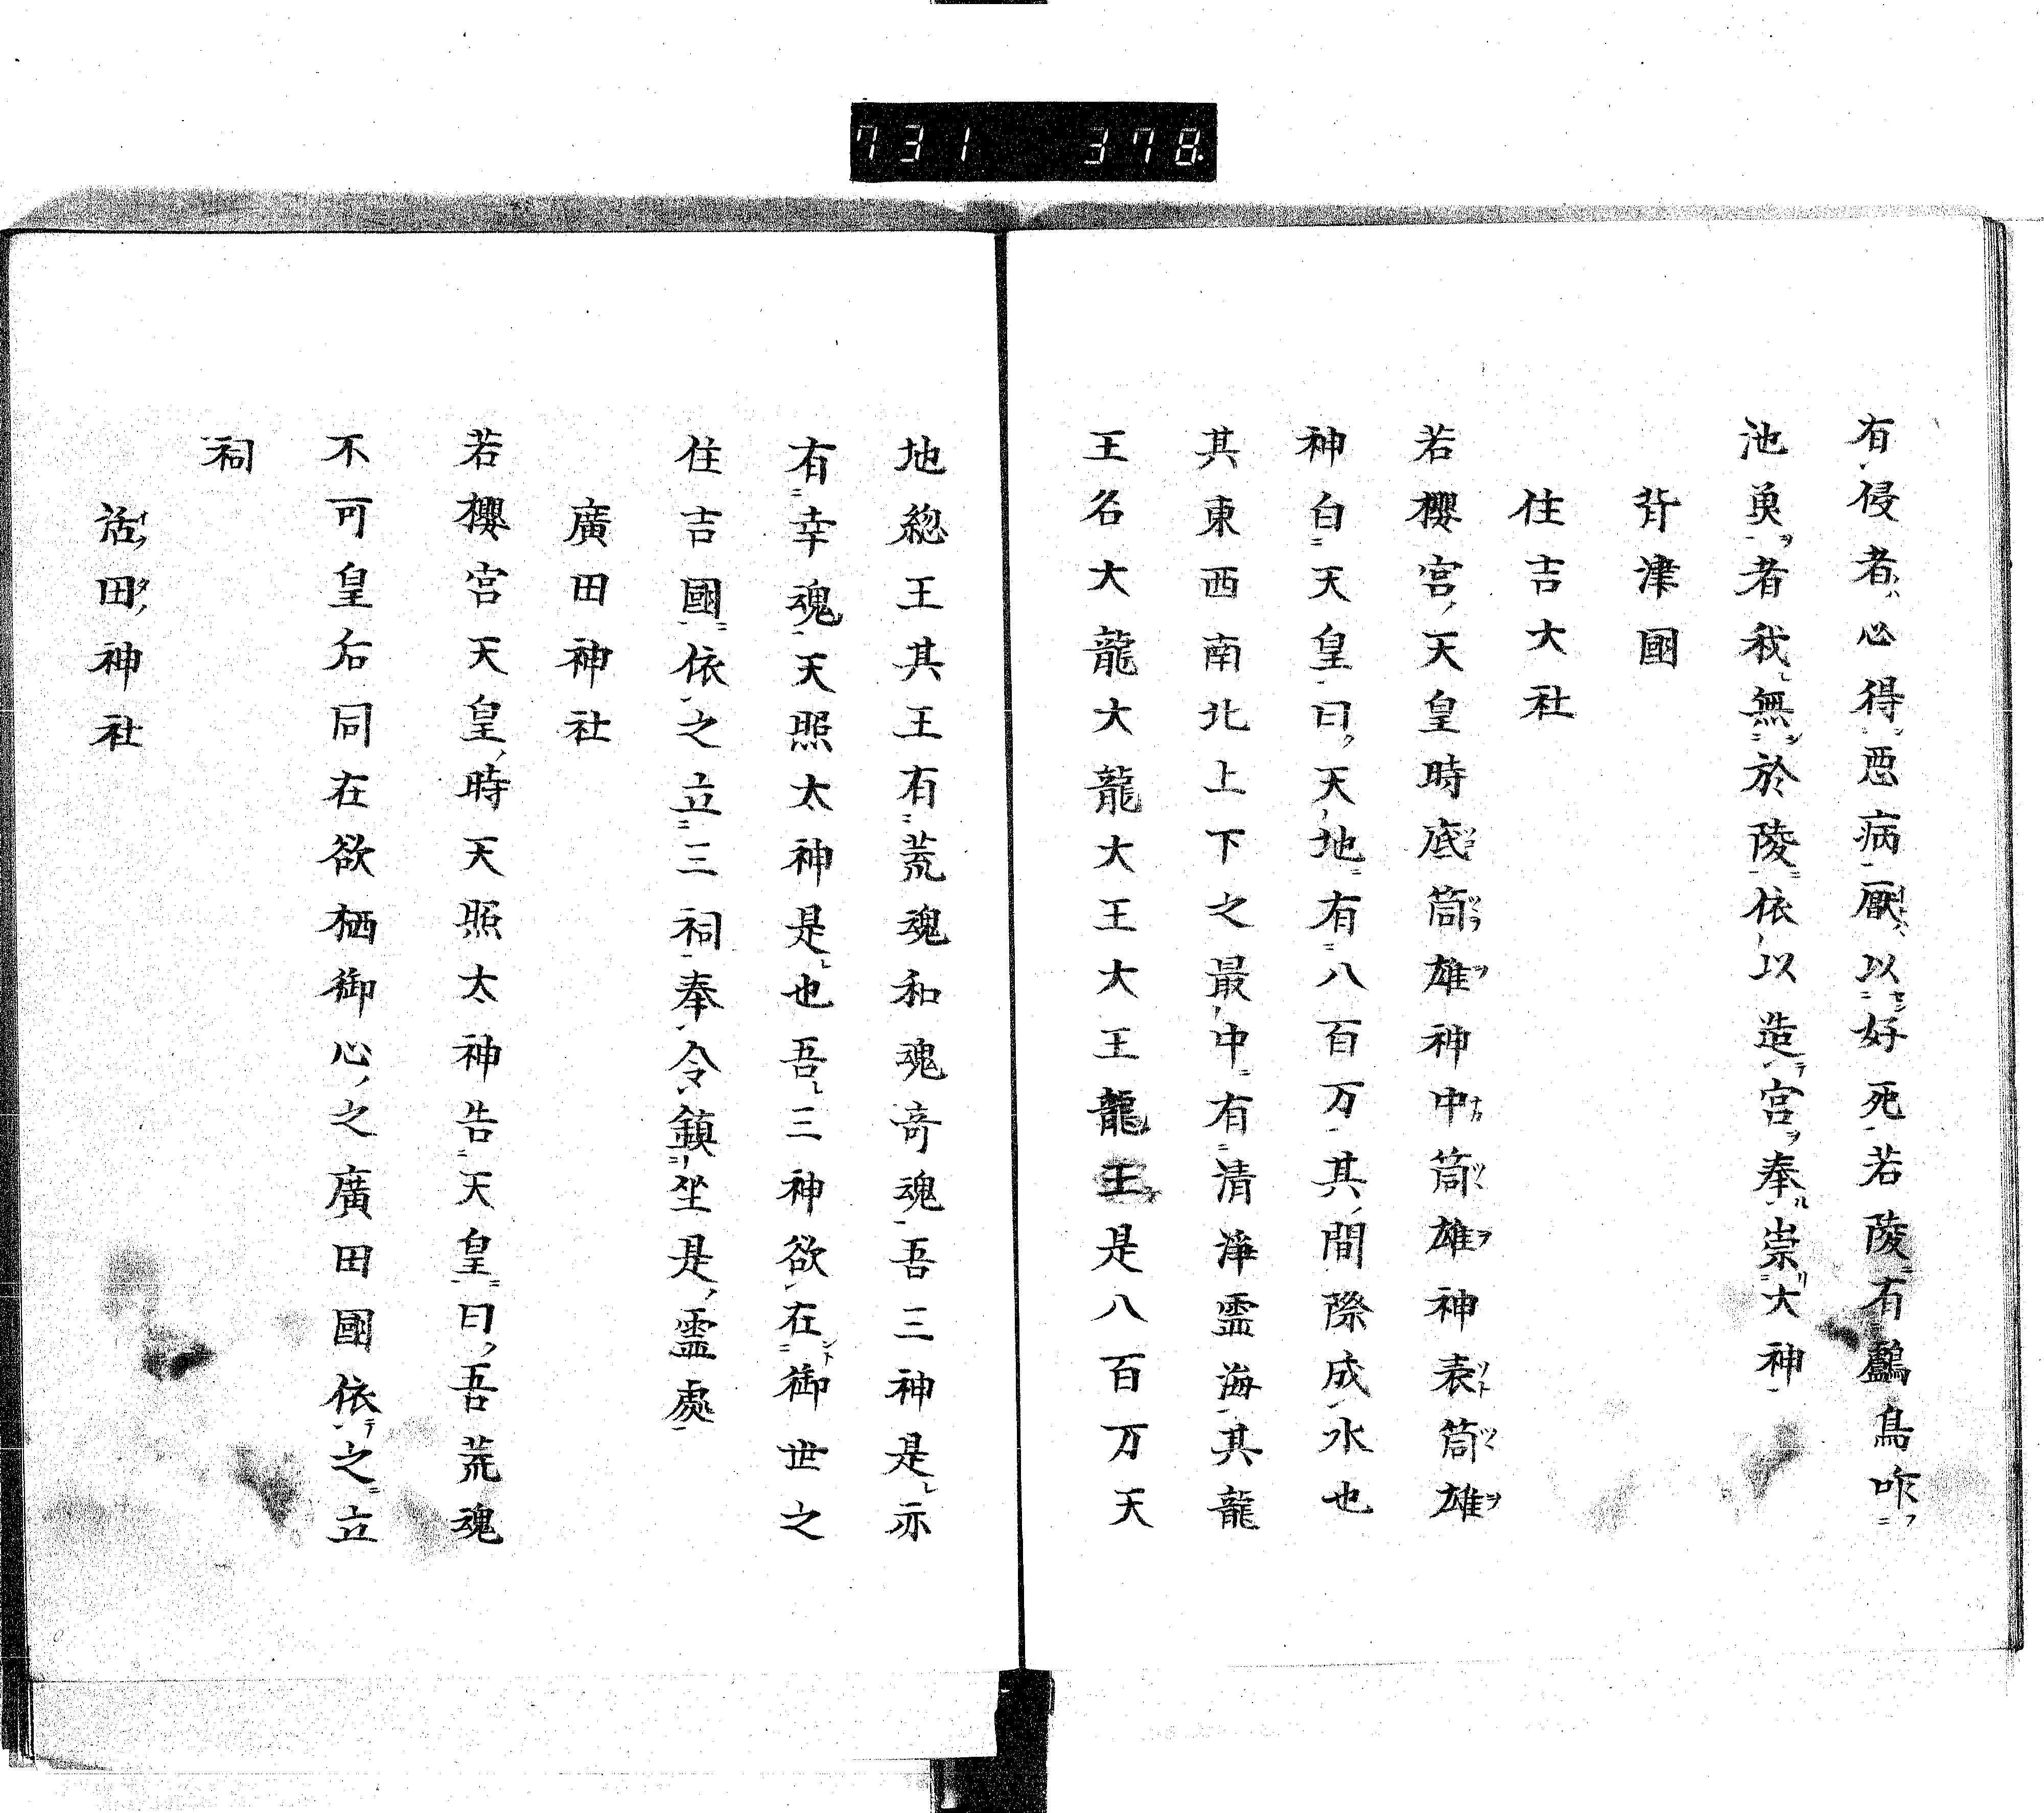 731 378.
有侵者心得悪病厭以好死若陵有鸕鳥咋
池魚者我無於陵依以造宮奉崇大神
背津國
住吉大社
若櫻宮天皇時底筒雄神中筒雄神表筒雄
神白天皇曰天地有八百万其間際成水也
其東西南北上下之最中有清淨霊海其龍
王名大龍大龍大王大王龍王是八百万天
地総王其王有荒魂和魂奇魂吾三神是亦
有幸魂天照太神是也吾三神欲在御世之
住吉國依之立三祠奉令鎮坐是霊處
廣田神社
若櫻宮天皇時天照太神告天皇曰吾荒魂
不可皇后同在欲栖御心之廣田國依之立
祠
活田神社